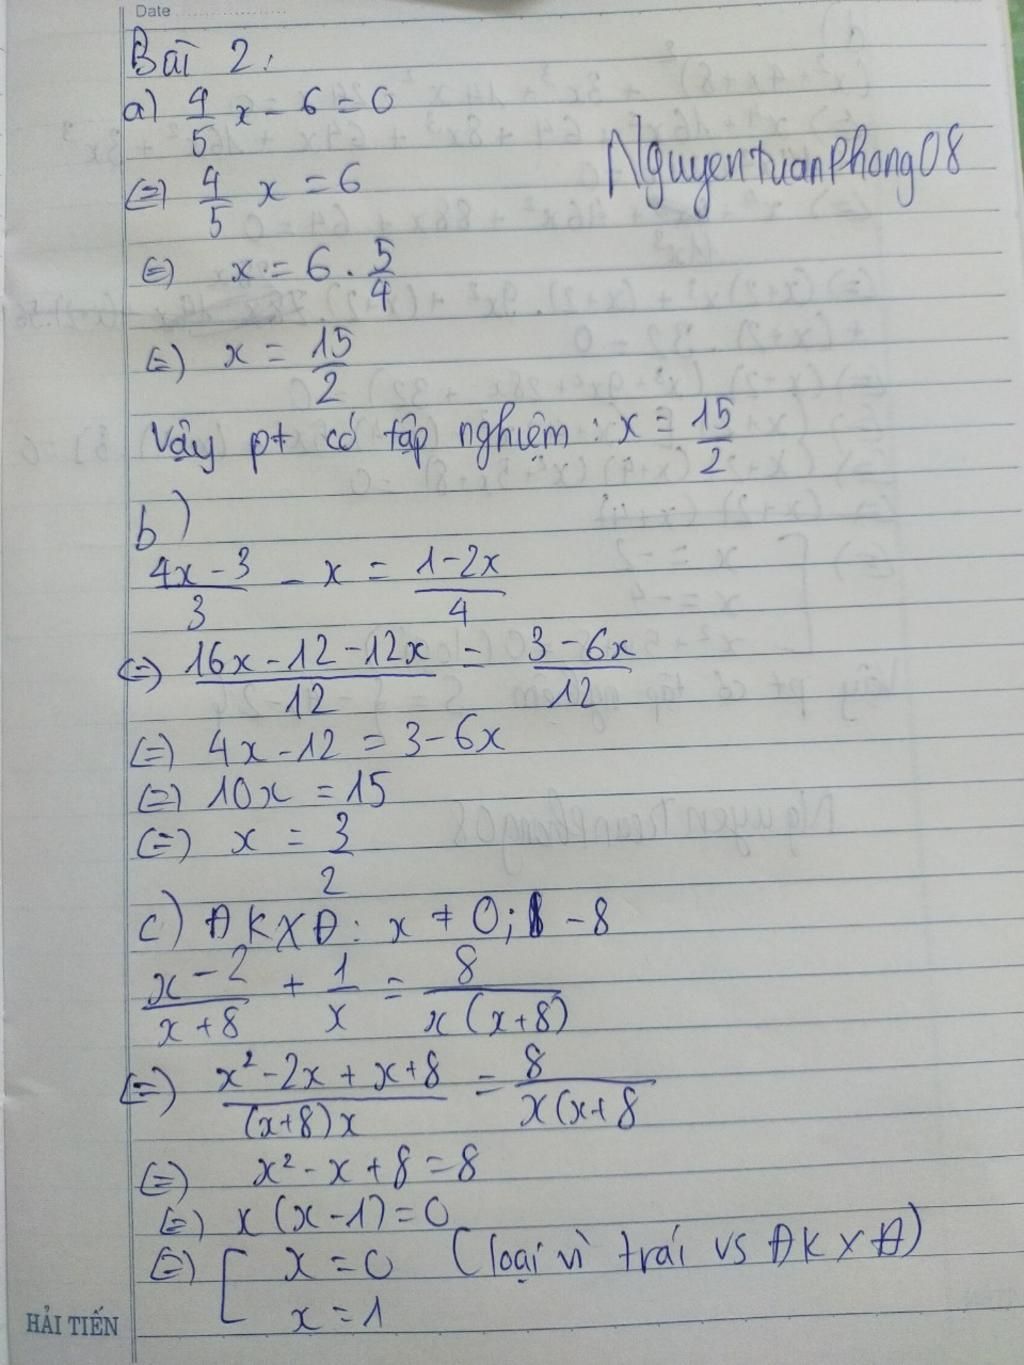 Date
Bài 2:
a) 4/5 x - 6 = 0
NguyentuanPhong08
(=) 4/5 x = 6
(=) x = 6 . 5/4
(=) x = 15/2
Vậy pt có tập nghiệm : x = 15/2
b)
4x-3/3 - x = 1-2x/4
(=) 16x-12-12x/12 = 3-6x/12
(=) 4x-12 = 3-6x
(=) 10x = 15
(=) x = 3/2
c) ĐKXĐ: x ≠ 0; -8
x-2/x+8 + 1/x = 8/x(x+8)
(=) x²-2x+x+8/(x+8)x = 8/x(x+8
(=) x²-x+8=8
(=) x(x-1)=0
(=) [ x=0 (loại vì trái vs ĐKXĐ)
x=1
HẢI TIẾN